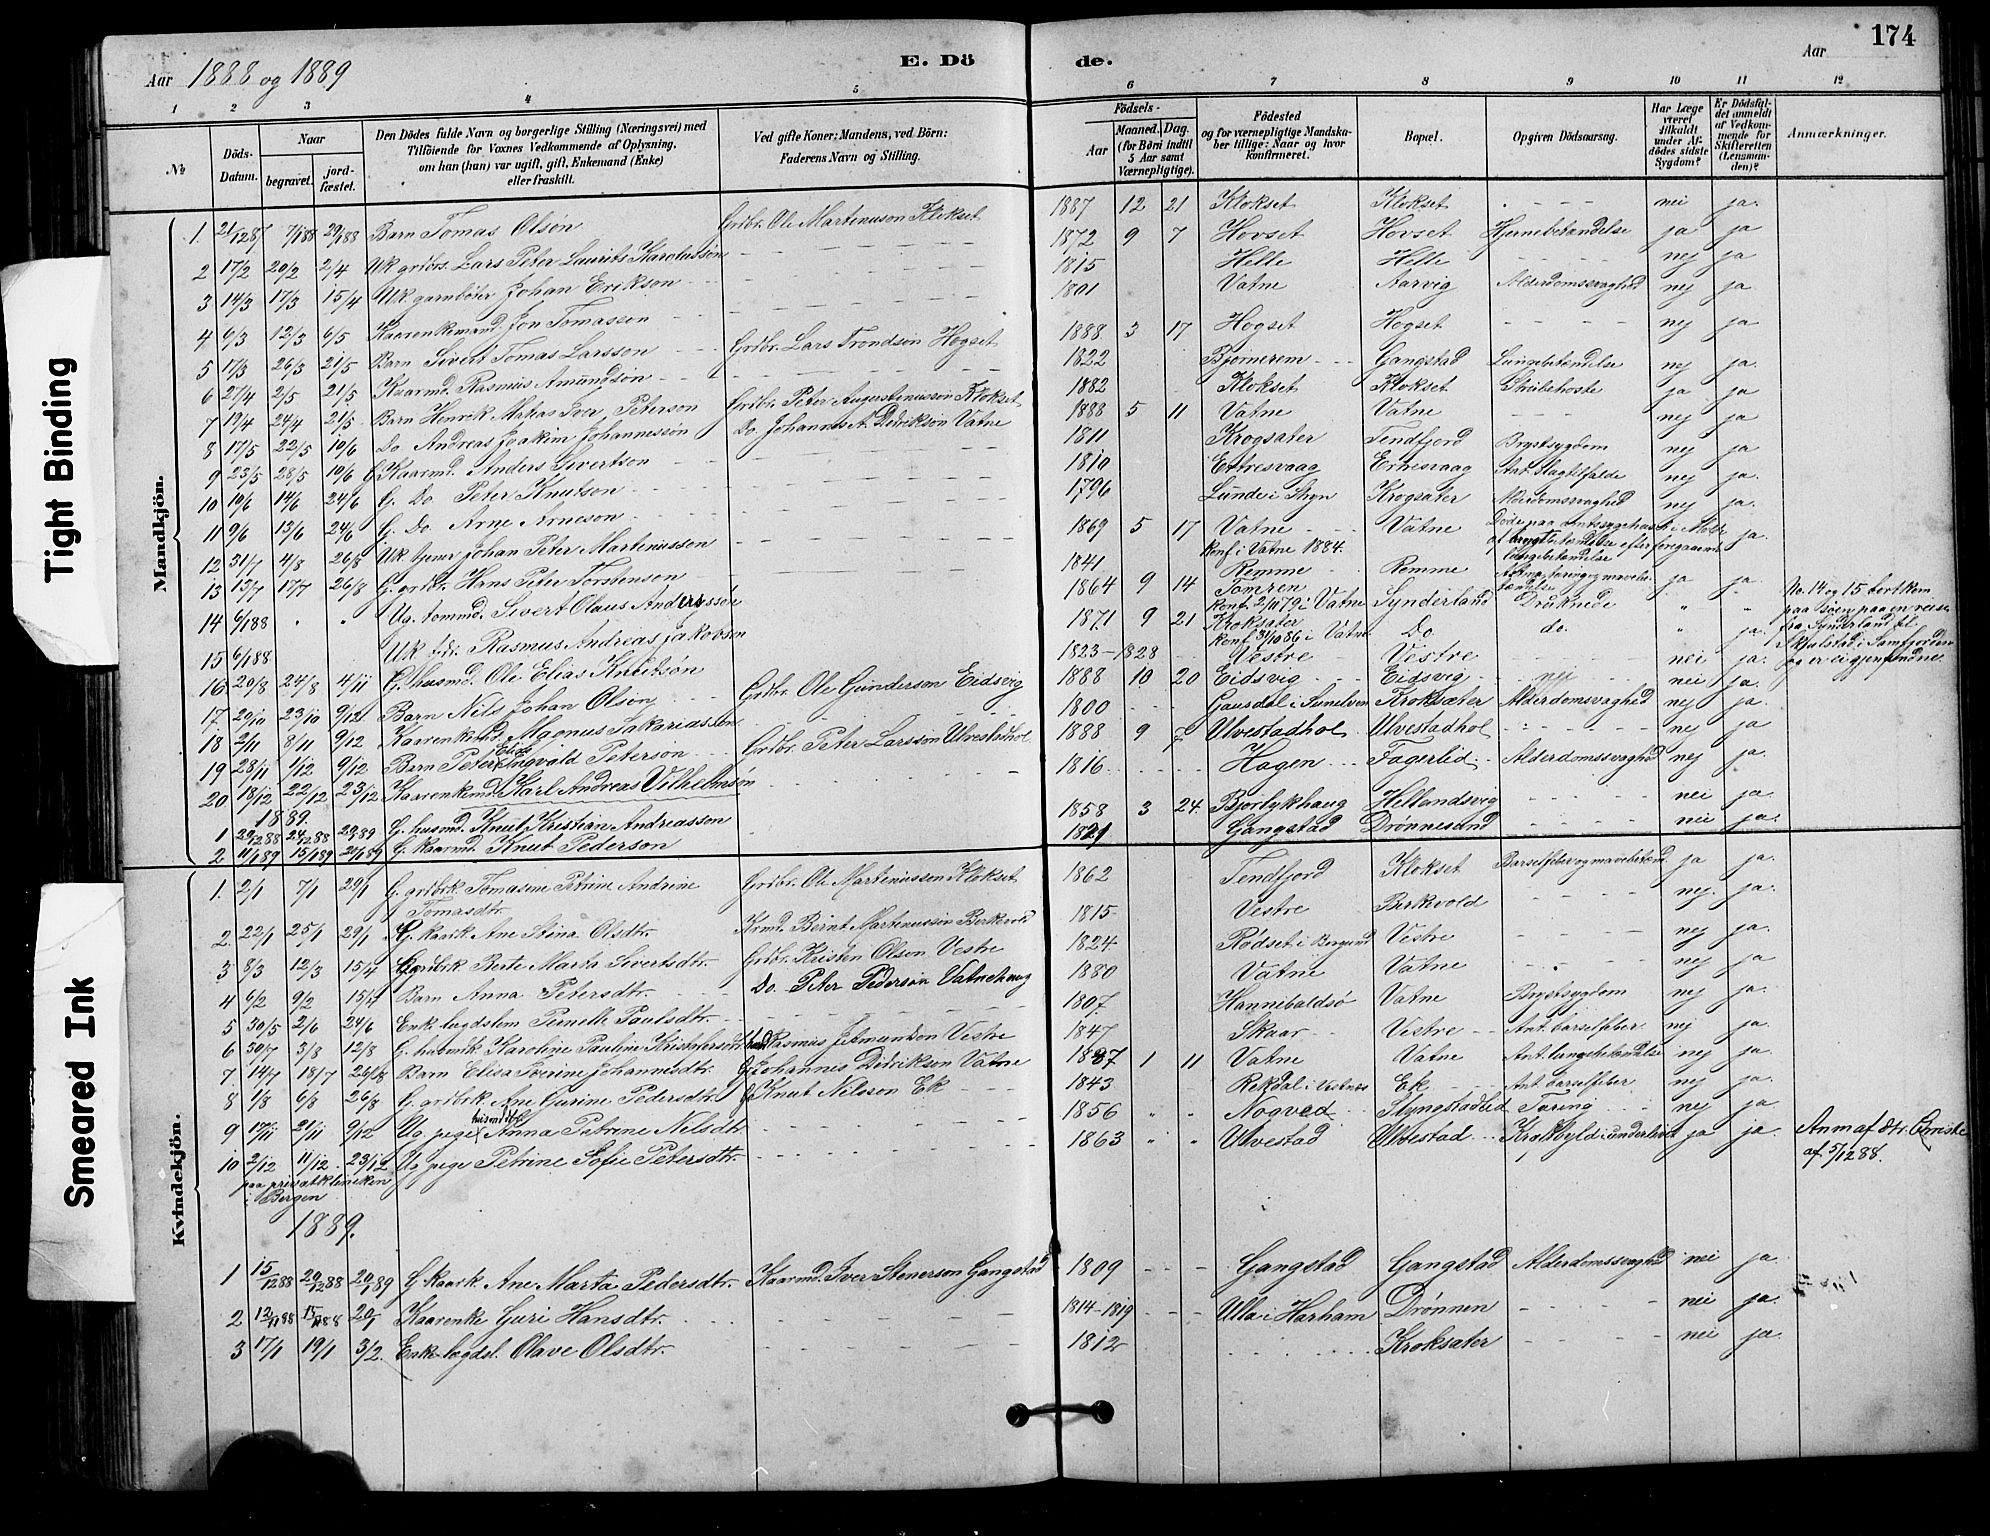 174
Aar 1888 og 1889
E. Dö
de.
Aar
1 2 3 4 5 6 7 8 9 10 11 12
№
Döds-Datum.
Naar
begravet.
jord-fæstet.
Den Dödes fulde Navn og borgerlige Stilling (Næringsvei) med
Tilföiende for Voxnes Vedkommende af Oplysning,
om han (hun) var ugift, gift, Enkemand (Enke)
eller fraskilt.
Ved gifte Koner: Mandens, ved Börn:
Faderens Navn og Stilling.
Födsels-
Aar
Maaned. Dag.
(for Börn indtil
5 Aar samt
Værnepligtige).
Födested
og for værnepligtige Mandska-
ber tillige: Naar og hvor
konfirmeret.
Bopæl.
Opgiven Dödsaarsag.
Har Læge
været
tilkaldt
under Af-
dödes sidste
Sygdom?
Er Dödsfal-
det anmeldt
af Vedkom-
mende for
Skifteretten
(Lensman-
den)?
Anmærkninger.
Mandkjön.
1. 21/12 87 7/1 88 29/1 88 Barn Tomas Olsön Grdbr. Ole Martinuson Klokset 1887 12 21 Klokset Klokset - - - nei ja.
2 17/2 20/2 2/4 Uk grdbrs. Lars Peter Laurits Karolussön 1872 9 7 Hovset Hovset Hjernebetændelse ja ja
3 14/3 17/3 15/4 Uk garnböter Johan Erikson 1815 Helle Helle nej ja
4 6/3 12/3 6/5 Kaarenkemand Jon Tomasson 1801 Vatne Aarvig Alderdomssvaghed nej ja
5 17/3 26/3 21/5 Barn Sivert Tomas Larsson Grdbr. Lars Trondsön Hogset 1888 3 17 Hogset Hogset nej ja
6 27/4 2/5 21/5 Kaarmd. Rasmus Amundsön 1822 Bjørnerem Gangstad Lunnebetændelse nej ja.
7 19/4 24/4 21/5 Barn Henrik Matias Iver Peterson Grdbr. Peter Augustinusson Klokset 1882 Klokset Klokset Strubehoste ja ja
8 17/5 22/5 10/6 Do Andreas Joakim Johannessön Do. Johannes A. Didrikson Vatne 1888 5 11 Vatne Vatne nej ja
9 23/5 28/5 10/6 G. Kaarmd. Anders Sivertson 1811 Krogsæter Tendfjord Brystsygdom nej ja
10 10/6 14/6 24/6 G. Do Peter Knutson 1810 Ertresvaag Ertresvaag Ant. Slagtilfælde nej ja.
11 9/6 13/6 24/6 G. Do Arne Arneson 1796 Lunde i Stryn Krogsæter Alderdomssvaghed nej ja.
12 31/7 4/8 26/8 Uk Johan Peter Martinusson 1869 5 17 Vatne Vatne Döde paa amtssygehuset i Molde ja.
Konf i Vatne 1884.
13 13/7 17/7 26/8 G. grdbr. Hans Peter Torstenson 1841 Remme Remme ja ja.
14 6/1 88 " " Ug. tommd. Sivert Olaus Andersson 1864 9 14 Tomren Synderland Druknede " "
Konf. 2/11 79 i Vatne
15 6/1 88 Uk Rasmus Andreas Jakobson 1871 9 21 Kroksæter Do do. " ja
Konf 31/10 86 i Vatne
No. 14 og 15 bortkom
paa søen paa en reise
fra Synderland til
Skjelstad i Samfjorden
og er ei gjenfundne.
16 20/8 24/8 4/11 G. husmd. Ole Elias Knutsön 1823-1828 Vestre Vestre nei ja.
17. 20/10 23/10 9/12 Barn Nils Johan Olson Grdbr. Ole Gunderson Eidsvig 1888 10 20 Eidsvig Eidsvig nei ja.
18 2/11 8/11 9/12 Kaarenkmd. Magnus Sakariasson 1800 Gausdal i Sunelven Kroksæter Alderdomsvaghed nej ja.
19 28/11 1/12 9/12 Barn Peter Elias Engvold Peterson Grdbr. Peter Larsson Ulvestadhol 1888 9 7 Ulvestadhol Ulvestadhol nej ja
20 18/12 22/12 23/12 Kaarenkemd. Karl Andreas Vilhelmsön 1816 Hagen Fagerlid Alderdomssvaghed nej ja.
1889.
1 20/12 88 24/12 88 20/1 89 G. husmd. Knut Kristian Andreasson 1858 3 24 Bjørlykhaug Hellandsvig nei ja
2 11/1 89 15/1 89 20/1 89 G. kaarmd. Knut Pederson 1821 Gangstad Drønnesund nei ja.
Kvindekjön.
1. 2/1 7/1 29/1 G. grdbrk. Tomasine Petrine Andrine
Tomasdtr. Grdbr. Ole Martinusson Klokset 1862 Tendfjord Klokset Barselfeber og mavebetænd. ja ja.
2. 22/1 25/1 29/1 G. kaark. Ane Stina Olsdtr. Krmd. Bernt Martinussön Berkvold 1815 Vestre Berkvold nej. ja.
3 8/3 12/3 15/4 G. grdbrk. Berte Marta Sivertsdtr. Grdbr. Kristen Olson Vestre 1824 Rödset i Borgund Vestre nej ja
4 6/2 9/2 15/4 Barn Anna Petersdtr. Do. Peter Pederson Vatnehaug 1880 Vatne Vatne nej ja
5 30/5 2/6 24/6 Enk. lægdslem Pernille Paulsdtr. 1807. Hannibaldsö Vatne Brystsygdom nej ja.
6 30/7 3/8 12/8 G. husmdk. Karoline Pauline Kristofersdtr. Rasmus Jetmundson Vestre 1847 Skaar Vestre Ant. barselfeber nej ja.
7. 14/7 18/7 26/8 Barn Elisa Severine Johannesdtr. Johannes Didrikson Vatne 1887 1 11 Vatne Vatne Ant. lungebetændelse nej ja.
8 1/8 6/8 26/8 G. grdbrk. Ane Gurine Pedersdtr. Knut Nilsson Ek 1843 Rekdal i Vestnes Ek Ant. barselfeber nej ja.
9 17/11 21/11 9/12 Ug. pige Anna Petrine Nilsdtr 1856 " " Nogved Slyngstadlid Tæring nej ja
10 2/12 11/12 23/12 Ug. pige Petrine Sofie Petersdtr. 1863 " " Ulvestad Ulvestad ja ja.
paa privatkliniken
i Bergen
Anm af dtr. Christie
af 5/12 88.
1889.
1 15/12 88 20/12 88 20/1 89 G. kaark. Ane Marta Pedersdtr. Kaarmd. Iver Stenerson Gangstad 1809 Gangstad Gangstad Alderdomssvaghed nei ja.
2 12/11 88 15/11 88 20/1 Kaarenke Guri Hansdtr. 1814-1819 Ulla i Harham Drönnen nei ja.
3 17/1 19/1 3/2. Enke lægdsl. Olave Olsdtr. 1812 Kroksæter nei ja.
Tight Binding
Smeared Ink